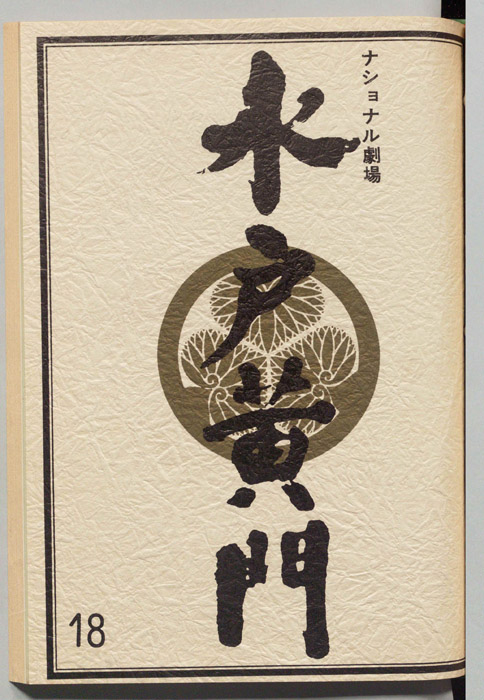 ナショナル劇場
水戸黄門
18